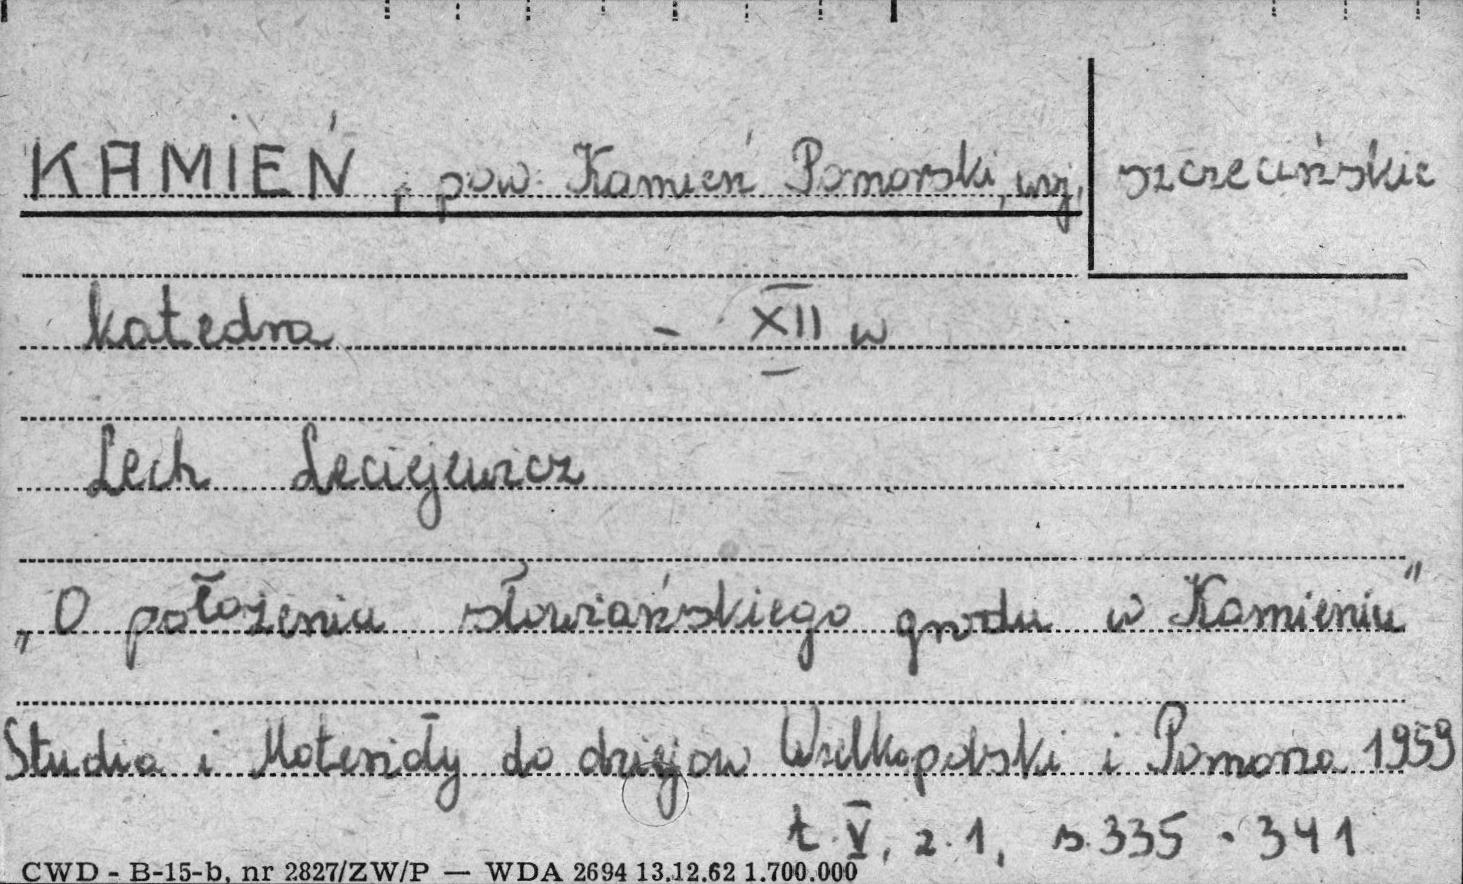 KAMIEŃ, pow. Kamień Pomorski, woj. szczecińskie
katedra - XII w
Lech Leciejewicz
„O położeniu słowiańskiego grodu w Kamieniu”
Studia i Materiały do dziejów Wielkopolski i Pomorza 1959
t. V, z. 1, s. 335 - 341
CWD - B-15-b, nr 2827/ZW/P — WDA 2694 13.12.62 1.700.000